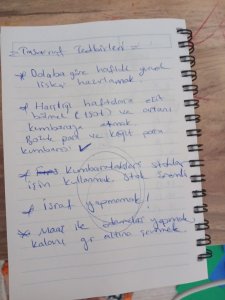 = Tasarruf Tedbirleri =
* Dolaba göre haftalık yemek
listesi hazırlamak
* Harçlığı haftalara eşit
bölmek ( ) ve artanı
kumbaraya atmak
Bozuk para ve kağıt para
kumbarası ✓
* Kumbaradakileri stoklar
için kullanmak. Stok önemli
* İsraf yapmamak!
* Maaş ile ödemeler yapmak,
kalanı gr altına çevirmek.